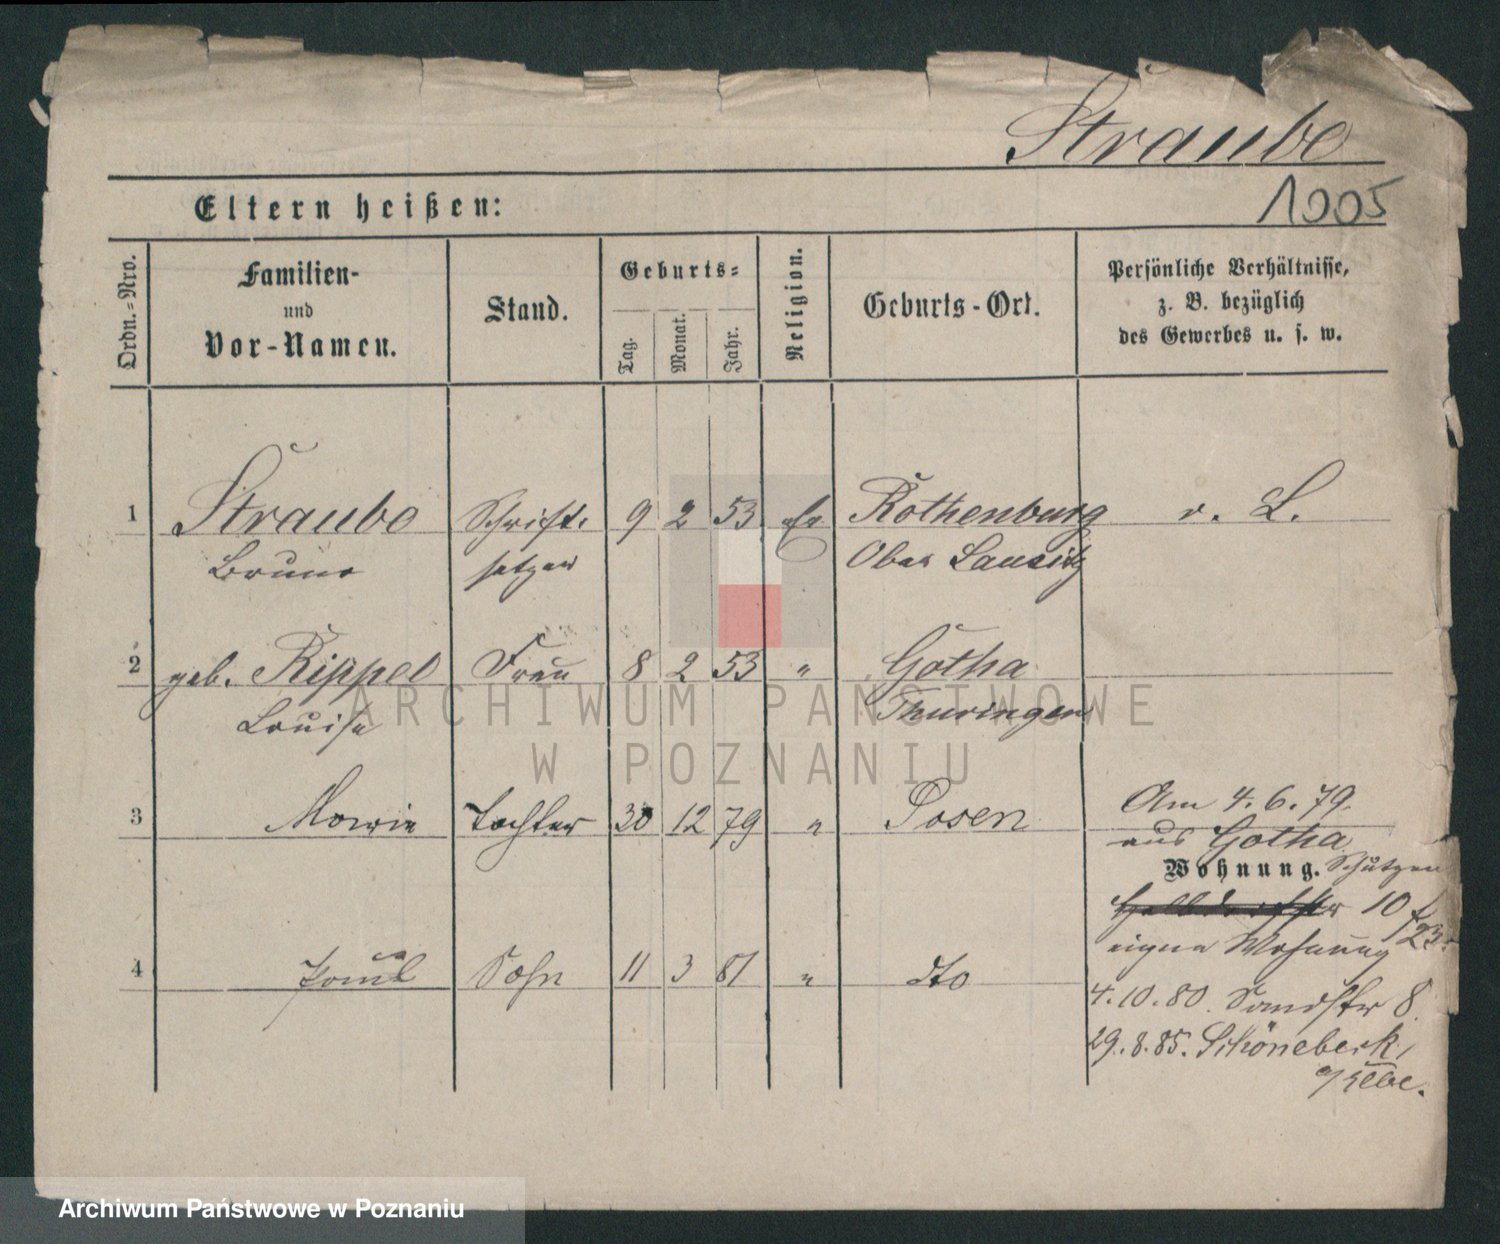 Straube
1005
Eltern heißen:
Ordn.-Nro.
Familien-
und
Vor-Namen.
Stand.
Geburts-
Tag.
Monat.
Jahr.
Religion.
Geburts-Ort.
Persönliche Verhältnisse,
z. B. bezüglich
des Gewerbes u. s. w.
1 Straube Schrift- 9 2 53 Ev Rothenburg v. L.
Bruno setzer Ober Lausitz
2 geb. Rippel Frau 8 2 53 " Gotha
Louise Thuringen
3 Marie Tochter 30 12 79 " Posen Am 4.6.79.
aus Gotha
Wohnung. Schützen
10
23.
eigene Wohnung
4 Paul Sohn 11 3 81 " dto
4.10.80. Sandstr 8.
29.8.85. Schönebeck,
a/Elbe.
ARCHIWUM PAŃSTWOWE
W POZNANIU
Archiwum Państwowe w Poznaniu